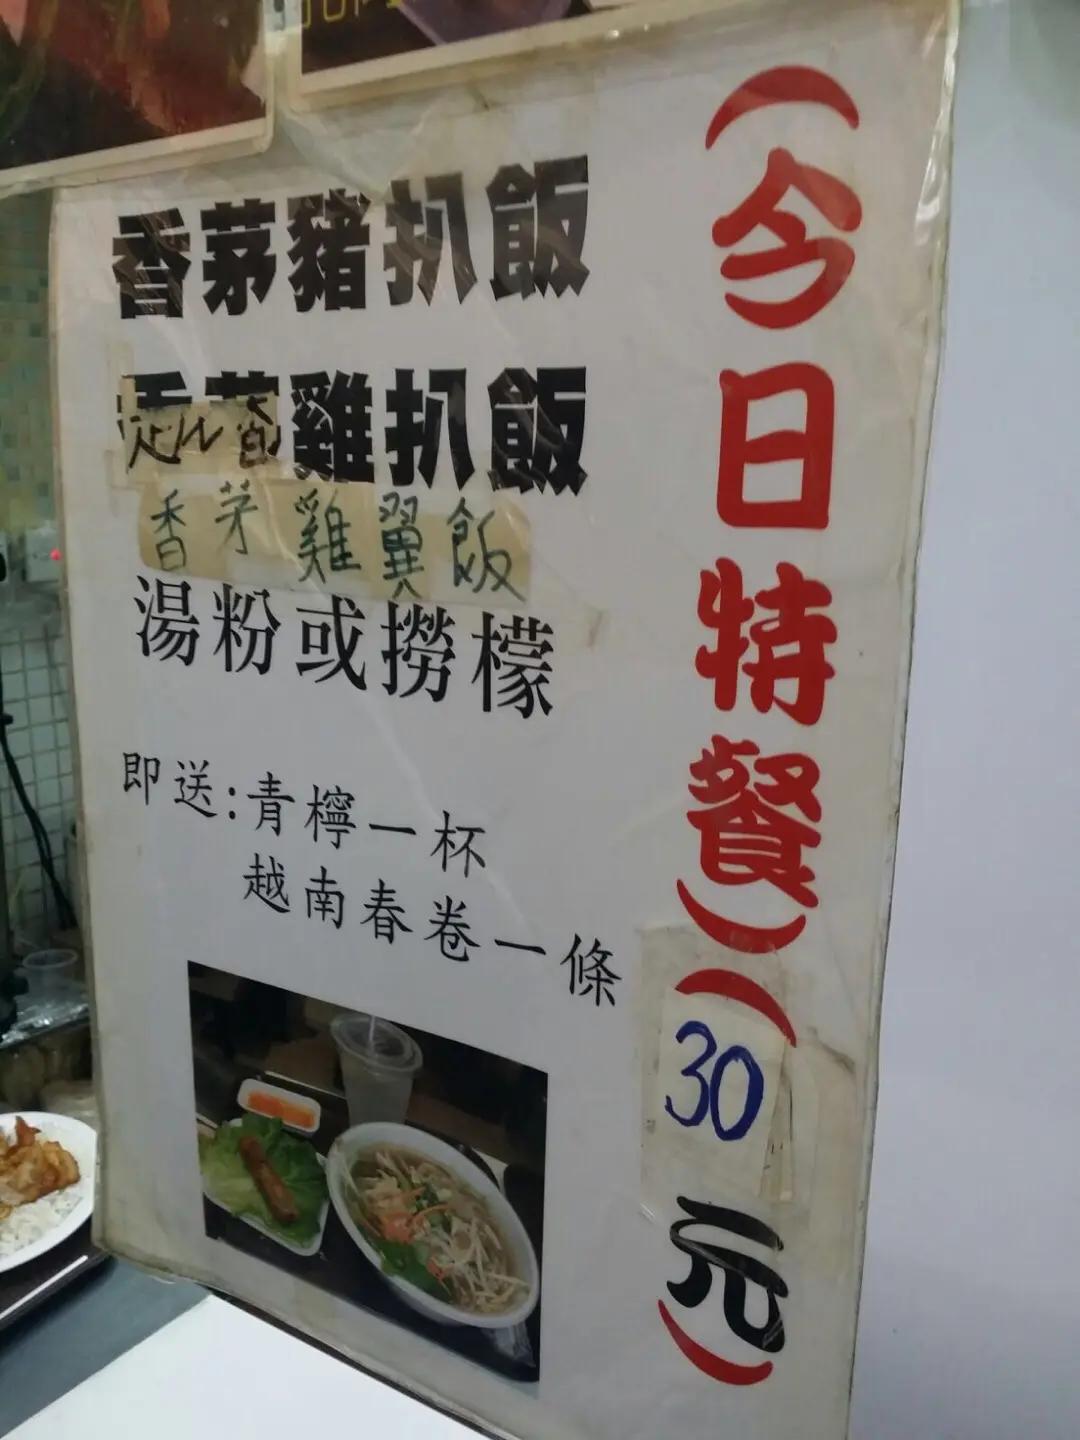 香茅豬扒飯
雞扒飯
香茅雞翼飯
湯粉或撈檬
即送:青檸一杯
越南春卷一條
(今日特餐)(30元)